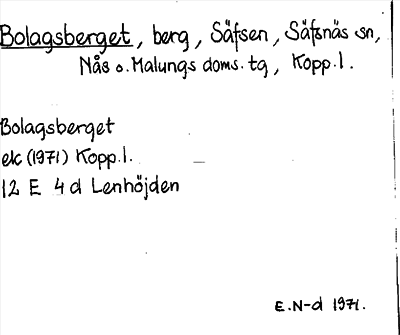 Bolagsberget, berg, Säfsen, Säfsnäs sn,
Nås o. Malungs doms. tg, Kopp.l.
Bolagsberget
ek (1971) Kopp.l.
12 E 4 d Lenhöjden
E.N-d 1971.